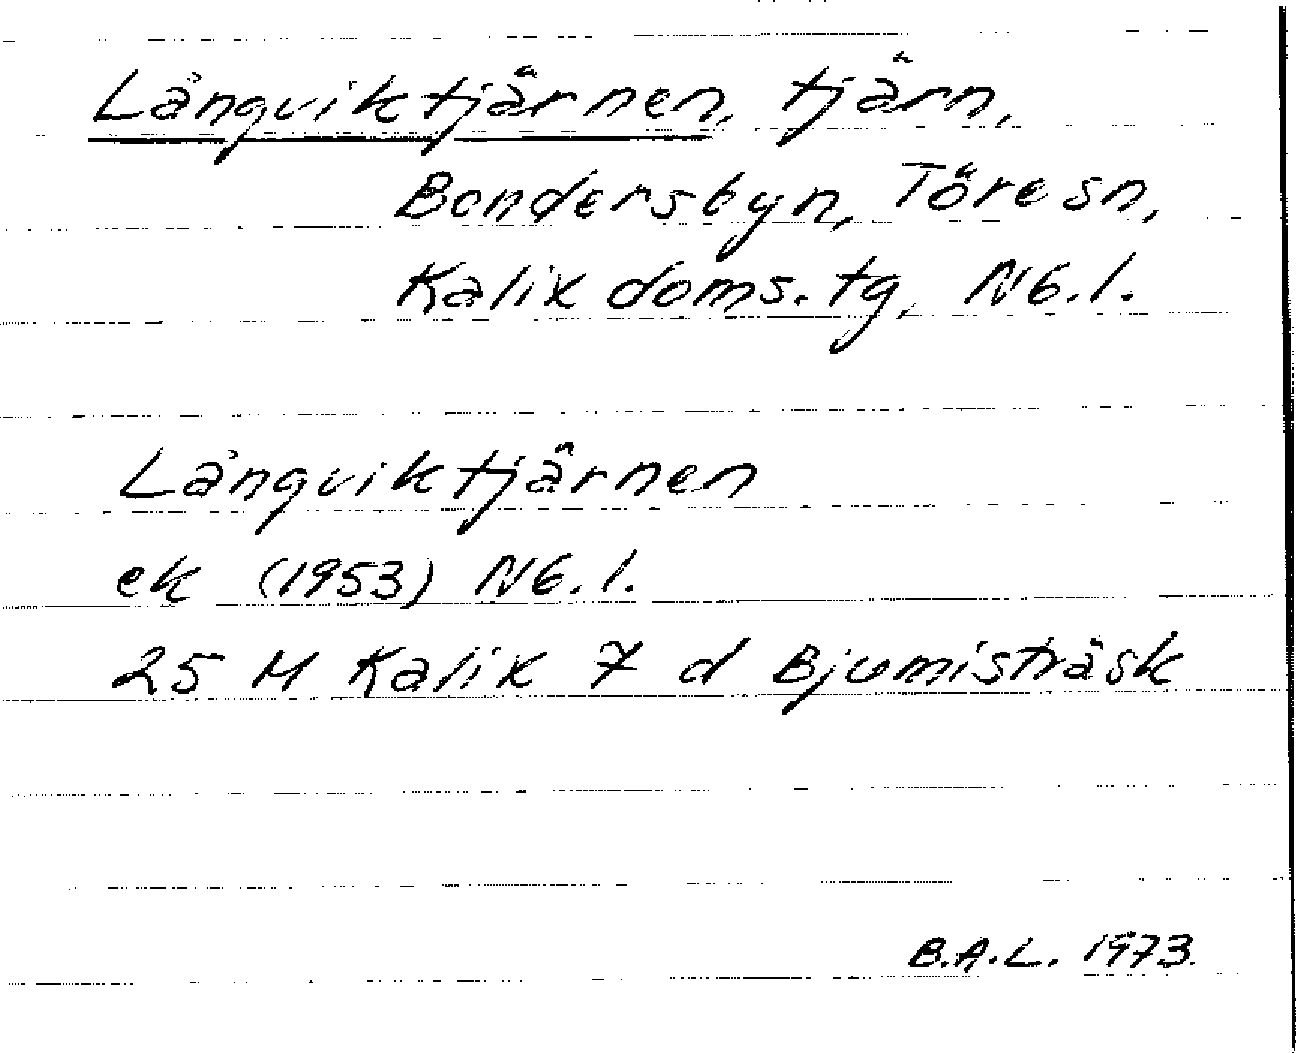 Långviktjärnen, tjärn,
Bondersbyn, Töre sn,
Kalix doms. tg, Nb. l.
Långviktjärnen
ek (1953) Nb. l.
25 M Kalix 7 d Bjumisträsk
B.A.L. 1973